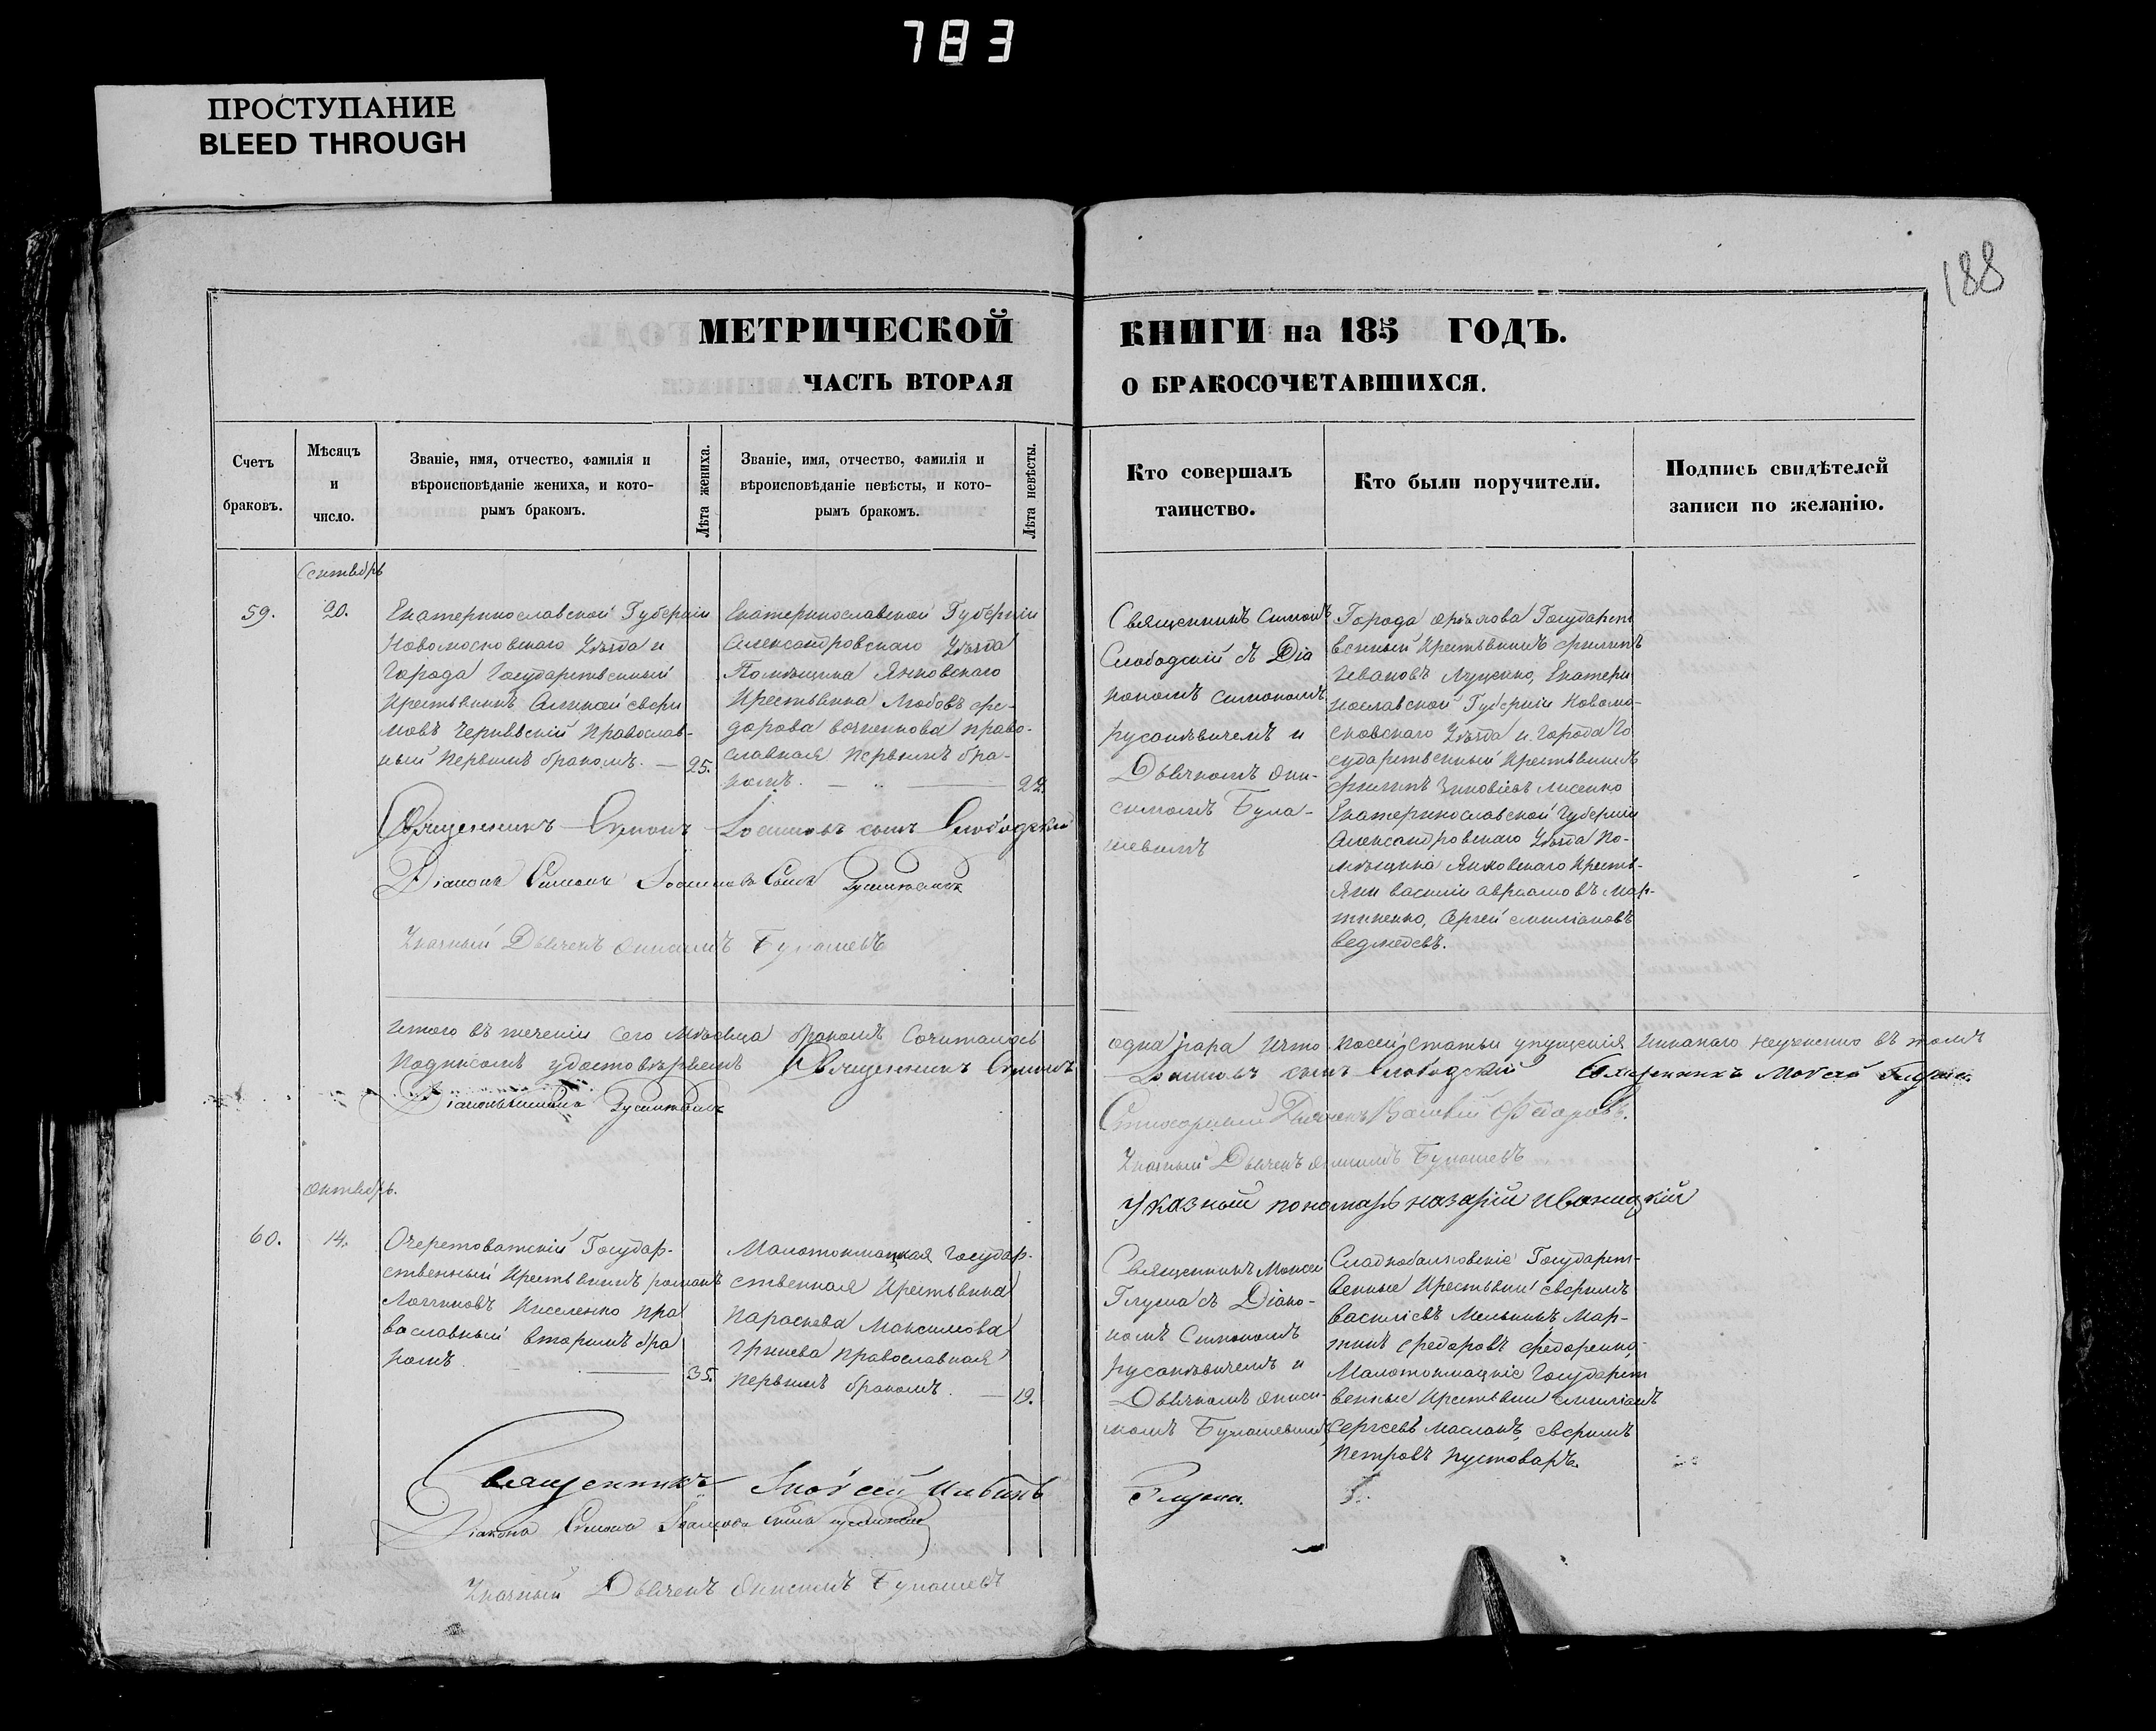 783
ПРОСТУПАНИЕ
BLEED THROUGH
188
МЕТРИЧЕСКОЙ КНИГИ на 185 ГОДЪ.
ЧАСТЬ ВТОРАЯ О БРАКОСОЧЕТАВШИХСЯ.
Счетъ
браковъ.
Мѣсяцъ
и
число.
Званіе, имя, отчество, фамилія и
вѣроисповѣданіе жениха, и кото-
рымъ бракомъ.
Лѣта жениха.
Званіе, имя, отчество, фамилія и
вѣроисповѣданіе невѣсты, и кото-
рымъ бракомъ.
Лѣта невѣсты.
Кто совершалъ
таинство.
Кто были поручители.
Подпись свидѣтелей
записи по желанію.
Сентябрь
59.
20.
Екатеринославской Губерніи
Новомосковскаго Уѣзда и
города Государственный
Крестьянинъ
Православ-
ный первымъ бракомъ. —
25.
Екатеринославской Губерніи
Александровскаго Уѣзда
Помѣщика Янковскаго
Крестьянка Любовь Фе-
дорова право-
славная первымъ бра-
комъ. — „ —
22.
Священникъ Симонъ
Слободскій съ Діа
кономъ Симономъ
и
Дьячкомъ Они-
симомъ Була-
шевымъ
Города Орѣхова Государст
венный Крестьянинъ Филипъ
Ивановъ Луценко, Екатери
нославской Губерніи Новомо-
сковскаго Уѣзда и города Го
сударственный Крестьянинъ
Филипъ Зиновіевъ Лисенко
Екатеринославской Губерніи
Александровскаго Уѣзда по-
мѣщика Янковскаго Кресть-
яни Василій Авраамовъ Мар-
тиненко, Сергей Емиліановъ
Ведмедевъ.
Священникъ Симонъ Іоанновъ сынъ Слободскій
Діаконъ Симонъ Іоанновъ Сынъ
Указный Дьячекъ Онисимъ Булашевъ
Итого въ теченіи сего Мѣсяца бракомъ Сочиталось одна пара Что по сей статьи упущенія никакаго неучинено въ томъ
подписомъ удостовѣряемъ Священникъ Симонъ Іоанновъ сынъ Слободскій Священникъ Моѵсей Глущи
Діаконъ Симонъ
Дьячекъ Василій Ѳедоровъ.
Указный Дьячекъ Онисимъ Булашевъ
Указной пономарь Назарій Иваницкій
Октябрь.
60.
14.
Очеретоватскій Государ-
ственный Крестьянинъ Романъ
Логгиновъ Киселенко пра
вославный вторымъ бра
комъ. —
35.
Малотокмацкая Государ-
ственная Крестьянка
Параскева Максимова
Гринева православная
первымъ бракомъ. —
19.
Священникъ Моисей
Глущи съ Діако-
номъ Симономъ
и
ДьячкомъОниси-
момъ Булашевымъ
Сладкобалковскіе Государст-
венные Крестьяни Ефримъ
Василіевъ Мельникъ, Мар-
тинъ Федоровъ Федоренко.
Малотокмацкіе Государст
венные Крестьяни Емиліанъ
Сергеевъ Масланъ, Ефримъ
Петровъ Пустоваръ.
Священникъ Моѵсей
Діаконъ Симонъ Іоанновъ Сынъ
Указный Дьячекъ Онисимъ Булашевъ